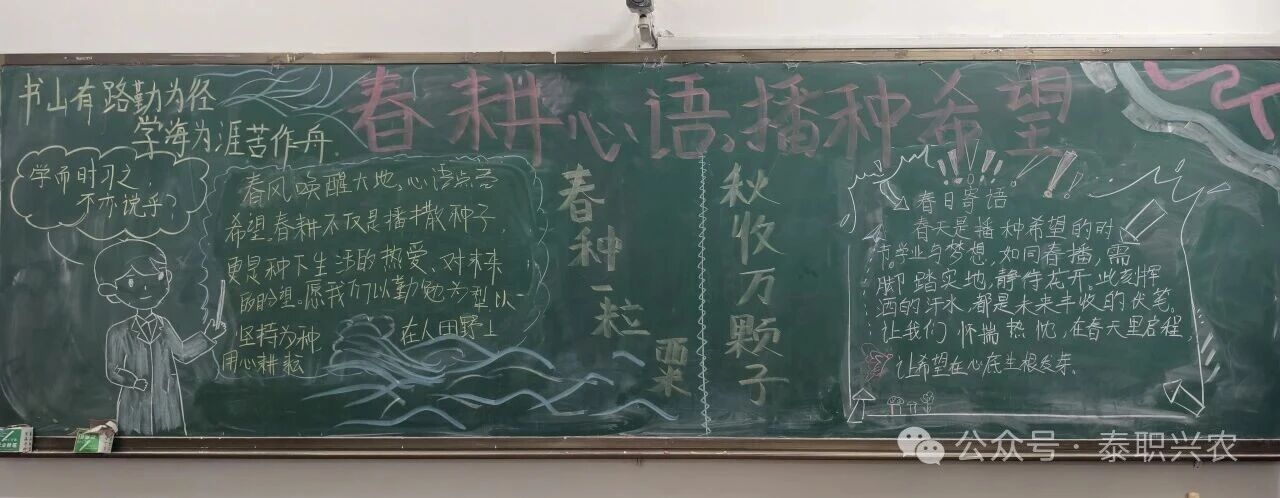 春耕心语,播种希望
书山有路勤为径
学海为涯苦作舟.
学而时习之,
不亦说乎?
春风唤醒大地,心语点吾
希望.春耕不仅是播撒种子,
更是种下生活的热爱、对未来
的盼望.愿我们以勤勉为犁,以
坚持为种
在人田野上
用心耕耘
春种一粒粟
秋收万颗子
春日寄语
春天是播种希望的时
节.学业与梦想,如同春播,需
脚踏实地,静待花开.此刻挥
洒的汗水,都是未来丰收的伏笔.
让我们怀揣热忱,在春天里启程,
让希望在心底生根发芽.
公众号·泰职兴农